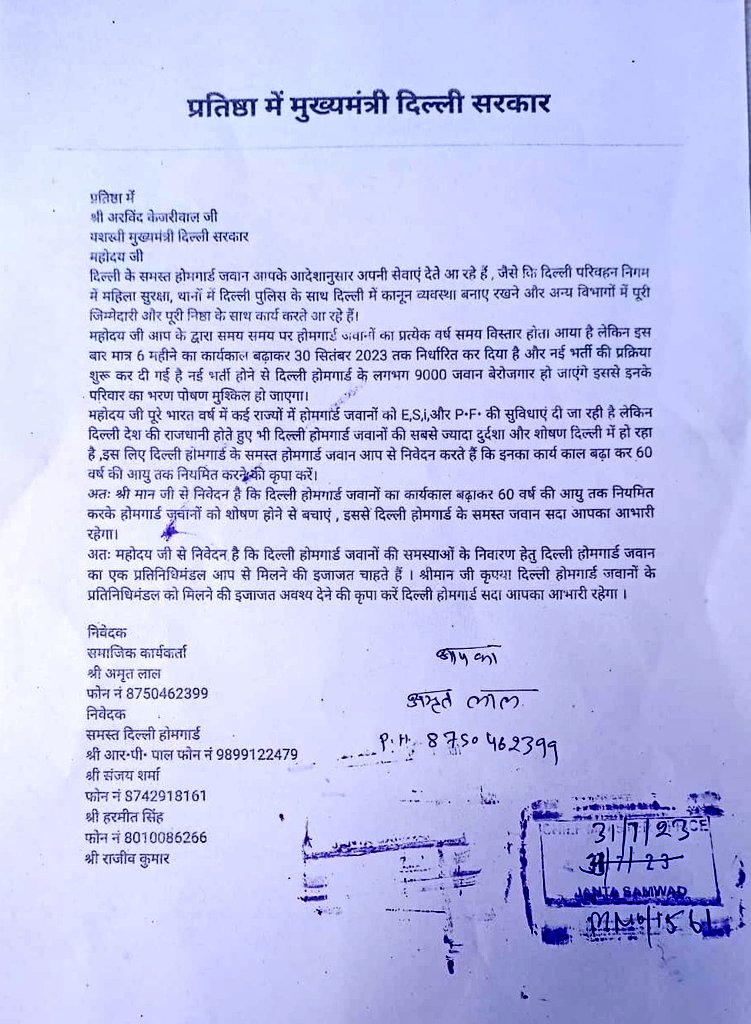 प्रतिष्ठा में मुख्यमंत्री दिल्ली सरकार
प्रतिष्ठा में
श्री अरविंद केजरीवाल जी
यशस्वी मुख्यमंत्री दिल्ली सरकार
महोदय जी
दिल्ली के समस्त होमगार्ड जवान आपके आदेशानुसार अपनी सेवाएं देते आ रहे हैं , जैसे कि दिल्ली परिवहन निगम
में महिला सुरक्षा, थानों में दिल्ली पुलिस के साथ दिल्ली में कानून व्यवस्था बनाए रखने और अन्य विभागों में पूरी
जिम्मेदारी और पूरी निष्ठा के साथ कार्य करते आ रहे हैं।
महोदय जी आप के द्वारा समय समय पर होमगार्ड जवानों का प्रत्येक वर्ष समय विस्तार होता आया है लेकिन इस
बार मात्र 6 महीने का कार्यकाल बढ़ाकर 30 सितंबर 2023 तक निर्धारित कर दिया है और नई भर्ती की प्रक्रिया
शुरू कर दी गई है नई भर्ती होने से दिल्ली होमगार्ड के लगभग 9000 जवान बेरोजगार हो जाएंगे इससे इनके
परिवार का भरण पोषण मुश्किल हो जाएगा।
महोदय जी पूरे भारत वर्ष में कई राज्यों में होमगार्ड जवानों को E,S,i,और P·F· की सुविधाएं दी जा रही है लेकिन
दिल्ली देश की राजधानी होते हुए भी दिल्ली होमगार्ड जवानों की सबसे ज्यादा दुर्दशा और शोषण दिल्ली में हो रहा
है ,इस लिए दिल्ली होमगार्ड के समस्त होमगार्ड जवान आप से निवेदन करते हैं कि इनका कार्य काल बढ़ा कर 60
वर्ष की आयु तक नियमित करने की कृपा करें।
अतः श्री मान जी से निवेदन है कि दिल्ली होमगार्ड जवानों का कार्यकाल बढ़ाकर 60 वर्ष की आयु तक नियमित
करके होमगार्ड जवानों को शोषण होने से बचाएं , इससे दिल्ली होमगार्ड के समस्त जवान सदा आपका आभारी
रहेगा।
अतः महोदय जी से निवेदन है कि दिल्ली होमगार्ड जवानों की समस्याओं के निवारण हेतु दिल्ली होमगार्ड जवान
का एक प्रतिनिधिमंडल आप से मिलने की इजाजत चाहते हैं । श्रीमान जी कृपया दिल्ली होमगार्ड जवानों के
प्रतिनिधिमंडल को मिलने की इजाजत अवश्य देने की कृपा करें दिल्ली होमगार्ड सदा आपका आभारी रहेगा ।
निवेदक
समाजिक कार्यकर्ता
श्री अमृत लाल
फोन नं 8750462399
निवेदक
समस्त दिल्ली होमगार्ड
श्री आर·पी· पाल फोन नं 9899122479
श्री संजय शर्मा
फोन नं 8742918161
श्री हरमीत सिंह
फोन नं 8010086266
श्री राजीव कुमार
आपका
अमृत लाल
8750462399
31/7/23
31/7/23
JANTA SAMWAD